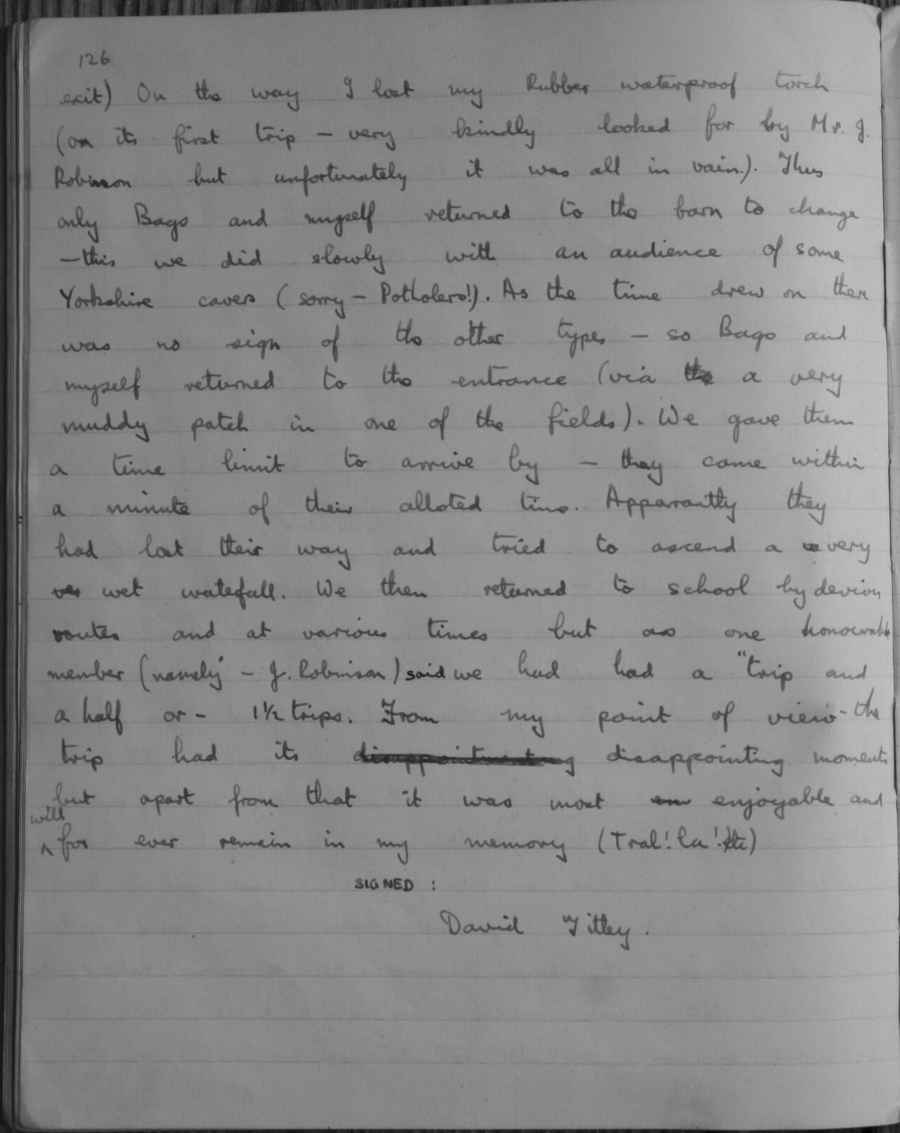 126
exit) On the way I lost my Rubber waterproof torch
(on its first trip – very kindly looked for by Mr. J.
Robinson but unfortunately it was all in vain.). Thus
only Bags and myself returned to the barn to change
– this we did slowly with an audience of some
Yorkshire cavers (sorry – Potholers!). As the time drew on ther
was no sign of the other types – so Bags and
myself returned to the entrance (via the a very
muddy patch in one of the fields). We gave them
a time limit to arrive by – they came within
a minute of their alloted time. Apparantly they
had lost their way and tried to ascend a very
ver wet watefall. We then returned to school by devious
routes and at various times but as one honourable
member (namely – J. Robinson) said we had had a "trip and
a half or – 1½ trips. From my point of view – the
trip had its disappointing moments
but apart from that it was most enjoyable and
will
^ for ever remain in my memory (Tral! la!
SIGNED :
David Titley.